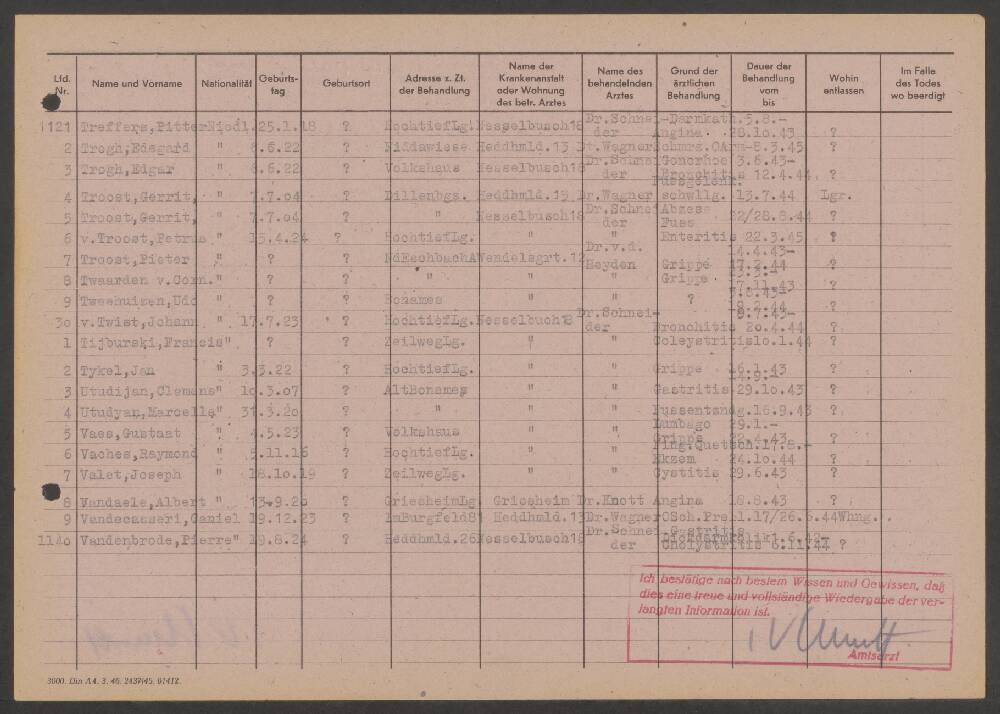 Lfd. Nr. Name und Vorname Nationalität Geburts-tag Geburtsort Adresse z. Zt. der Behandlung Name der Krankenanstalt oder Wohnung des betr. Arztes Name des behandelnden Arztes Grund der ärztlichen Behandlung Dauer der Behandlung vom bis Wohin entlassen Im Falle des Todes wo beerdigt
1121 Treffers,Pitter Niedl. 25.1.18 ? HochtiefLg. Nesselbusch18 Dr.Schnei-der Darmkath. Angina 5.8.- 28.10.43 ?
2 Trogh,Edsgard " 6.6.22 ? Niddawiese Heddhmld.13 Dr.Wagner Schmrg.OArm 8.3.45 ?
3 Trogh,Edgar " 6.6.22 ? Volkshaus Nesselbusch18 Dr.Schnei-der Gonorrhoe Bronchitis 3.6.43- 12.4.44 ?
4 Troost,Gerrit, " 7.7.04 ? Dillenbgs. Heddhmld.13 Dr.Wagner Fussgelenk. schwllg. 13.7.44 Lgr.
5 Troost,Gerrit, " 7.7.04 ? " Nesselbusch18 Dr.Schnei-der Abzess Fuss 22/28.8.44 ?
6 v.Troost,Petrus " 15.4.24 ? HochtiefLg. " " Enteritis 22.3.45 ?
7 Troost,Pieter " ? ? NdEschbachA Wendelsgrt.12 Dr.v.d. Heyden Grippe 14.4.43- 17.2.44 ?
8 Twaarden v.Corn. " ? ? " " " Grippe 17.11.43 ?
9 Tweehuizen,Udo ? ? Bonames " " ? 9.2.44 ?
30 v.Twist,Johann " 17.7.23 ? HochtiefLg. Nesselbuch18 Dr.Schnei-der Bronchitis 8.7.43- 20.4.44 ?
1 Tijburski,Francis " ? ? ZeilwegLg. " " Coleystritis 10.1.44 ?
2 Tykel,Jan " 3.3.22 ? HochtiefLg. " " Grippe 16.1.43 ?
3 Utudijan,Clemens " 10.3.07 ? AltBonames " " Gastritis 29.10.43 ?
4 Utudyan,Marcelle " 31.3.20 ? " " " Fussentsndg. 16.9.43 ?
5 Vaes,Gustaat " 4.5.23 ? Volkshaus " " Lumbago Grippe 29.1.- 22.4.43 ?
6 Vaches,Raymond " 5.11.16 ? HochtiefLg. " " Fing.Quetsch. Ekzem 17.8.- 24.10.44 ?
7 Valet,Joseph " 18.10.19 ? ZeilwegLg. " " Cystitis 29.6.43 ?
8 Vandaele,Albert " 13.9.20 ? GriesheimLg Griesheim Dr.Knott Angina 18.8.43 ?
9 Vandecasseri,Daniel 19.12.23 ? ImBurgfeld81 Heddhmld.13 Dr.Wagner OSch.Prell. 17/26.6.44 Whng.
1140 Vandenbrode,Pierre " 19.8.24 ? Heddhmld.26 Nesselbusch18 Dr.Schnei-der Gastritis Cholystritis 6.11.44 ?
Ich bestätige nach bestem Wissen und Gewissen, daß
dies eine treue und vollständige Wiedergabe der ver-
langten Information ist.
Amtsarzt
3000. Din A4. 3. 46. 2437/45. 61412.